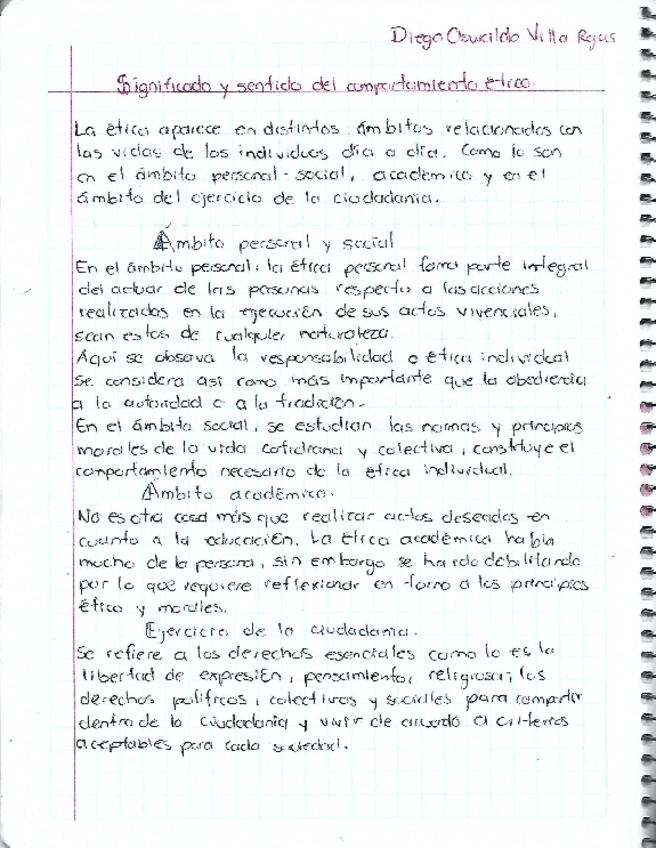 Diego Oswaldo Villa Rojas
Significado y sentido del comportamiento ético.
La ética aparece en distintos ámbitos relacionados con
las vidas de los individuos día a día. Como lo son
en el ámbito personal-social, académico y en el
ámbito del ejercicio de la ciudadanía.
Ámbito personal y social
En el ámbito personal, la ética personal forma parte integral
del actuar de las personas respecto a las acciones
realizadas en la ejecución de sus actos vivenciales,
sean estos de cualquier naturaleza.
Aquí se observa la responsabilidad o ética individual
se considera así como más importante que la obediencia
a la autoridad o a la tradición.
En el ámbito social, se estudian las normas y principios
morales de la vida cotidiana y colectiva, constituye el
comportamiento necesario de la ética individual.
Ámbito académico.
No es otra cosa más que realizar actos deseados en
cuanto a la educación. La ética académica habla
mucho de la persona, sin embargo se ha ido debilitando
por lo que requiere reflexionar en torno a los principios
ético y morales.
Ejercicio de la ciudadanía.
Se refiere a los derechos esenciales como lo es la
libertad de expresión, pensamiento, religiosa; los
derechos políticos, colectivos y sociales para compartir
dentro de la ciudadanía y vivir de acuerdo a criterios
aceptables para cada sociedad.